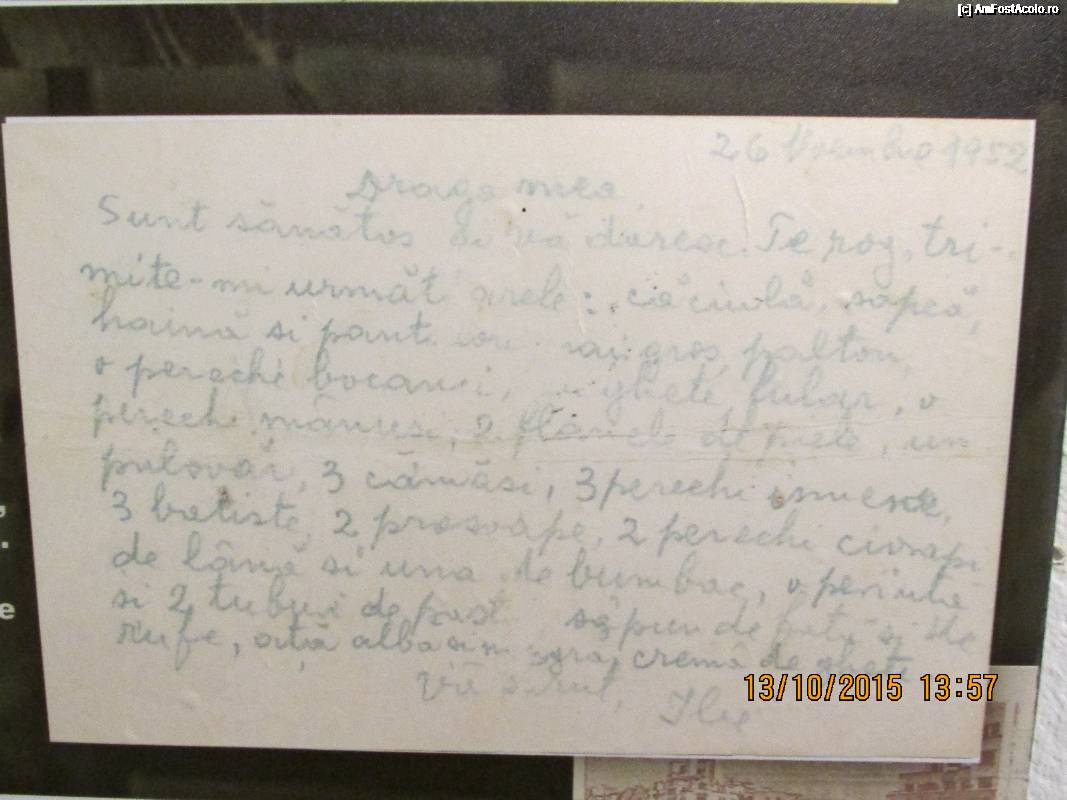 [c] AmFostAcolo.ro
26 Noembrie 1952
Draga mea,
Sunt sănătos și vă doresc. Te rog, tri-
mite-mi următoarele: căciulă, sapcă,
haină si pantaloni mai groși, palton,
o perechi bocanci, ghete, fular, o
perechi mănusi, 2 flanele de piele, un
pulovăr, 3 cămăsi, 3 perechi ismene,
3 batiste, 2 prosoape, 2 perechi ciorapi
de lână si una de bumbac, o periuta
si 2 tuburi de pastă, săpun de fată si de
rufe, ată alba si neagra, cremă de ghete
Vă sărut,
Ilie
13/10/2015 13:57
e